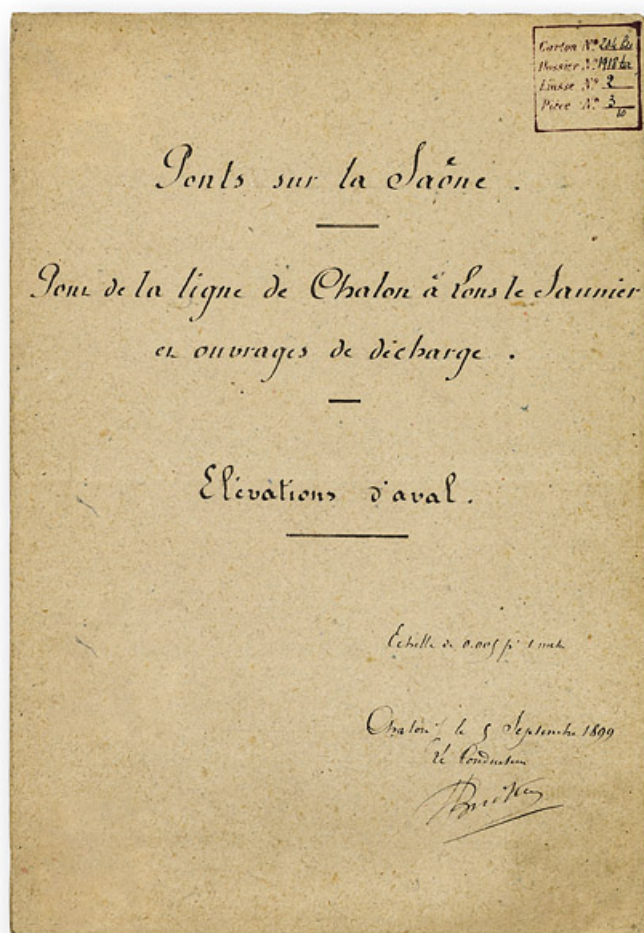 Carton Nº 204 bis
Dossier Nº 1918 ter
Liasse Nº 2
Pièce Nº 3/10
Ponts sur la Saône.
Pont de la ligne de Chalon à Lons le Saunier
et ouvrages de décharge.
Elévations d'aval.
Echelle de 0.005 pr 1 mètre
Chalon, le 5 Septembre 1899
Le Conducteur